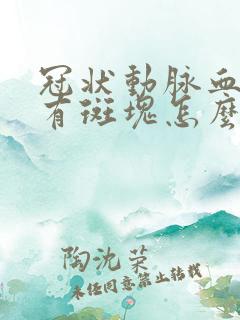 冠狀動脈血
有斑塊怎麼
陶沈榮
未經同意禁止轉載